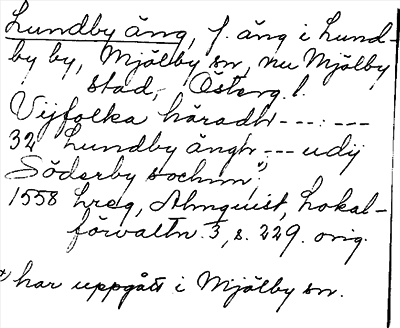 Lundby äng, f. äng i Lund-
by by, Mjölby sn, nu Mjölby
stad, Österg. l.
Vijfolka häradh ---:---
32 Lundby ängh --- udij
Söderby sochnn x)
1558 Lreg, Almquist, Lokal-
förvaltn. 3, s. 229. orig.
x) har uppgått i Mjölby sn.